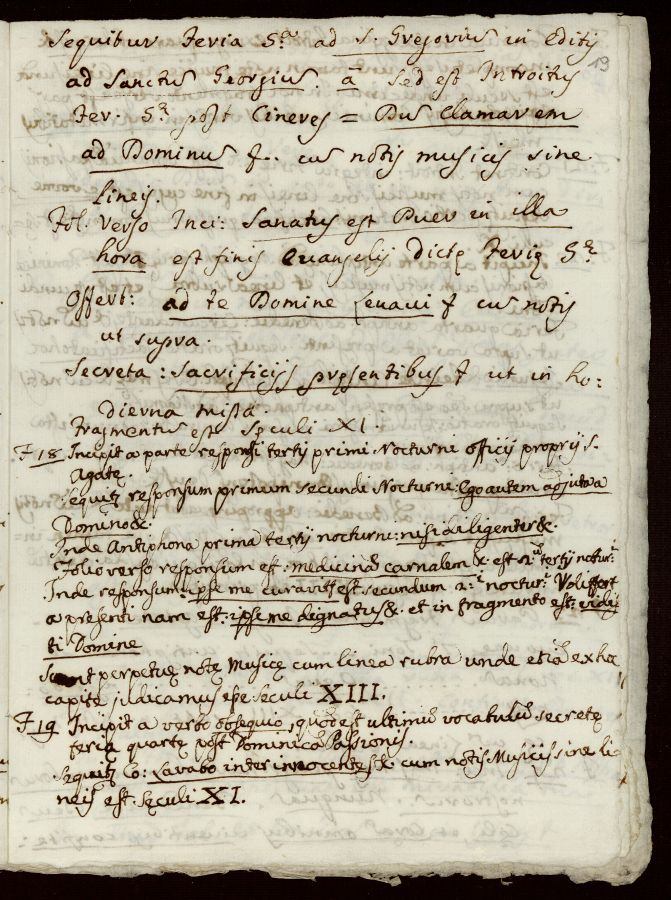 19
Sequitur Feria 5.ª ad S. Gregoriũ in Editis
ad Sanctũ Georgiũ a sed est Introitus
Fer. 5.ª post Cineres = Dũ clamarem
ad Dominũ &.. cũ notis musicis sine
lineis.
Fol. verso Inci: Sanatus est Puer in illa
hora est finis Evangelij dictę Ferię 5.ª
Offert: ad te Domine levavi & cũ notis
ut supra.
Secreta: Sacrificijs pręsentibus & ut in ho:
dierna missa.
Fragmentũ est sęculi XI.
F 18 Incipit a parte responsi tertij primi Nocturni officij proprij S.
Agatę.
Sequit. responsum primum secundi Nocturni: Ego autem adjuta a
Domino &c.
Inde Antiphona prima tertij nocturni: nisi diligenter &c.
Folio verso responsum est: medicinã carnalem & est 2.ũ tertij noctur:
Inde responsum: ipse me curavit & est secundum 2.i noctur:
a presenti nam est: ipse me dignatus &. et in fragmento est: vidis
ti Domine
Sunt perpetuę notę Musicę cum linea rubra unde etiã ex hoc
capite judicamus esse sęculi XIII.
F 19 Incipit a verbo obsequio, quod est ultimũ vocabulũ secretę
feria quartę post Dominicã Passionis.
Sequit. Co: Lavabo inter innocentes & cum notis Musicis sine li
neis est. Sęculi XI.